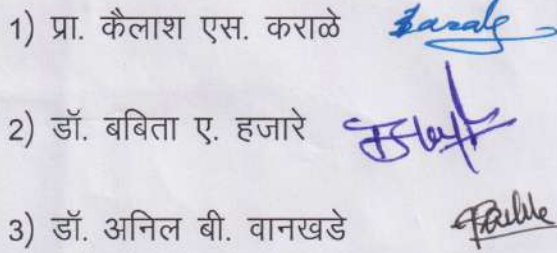 1) प्रा. कैलाश एस. कराळे
2) डॉ. बबिता ए. हजारे
3) डॉ. अनिल बी. वानखडे